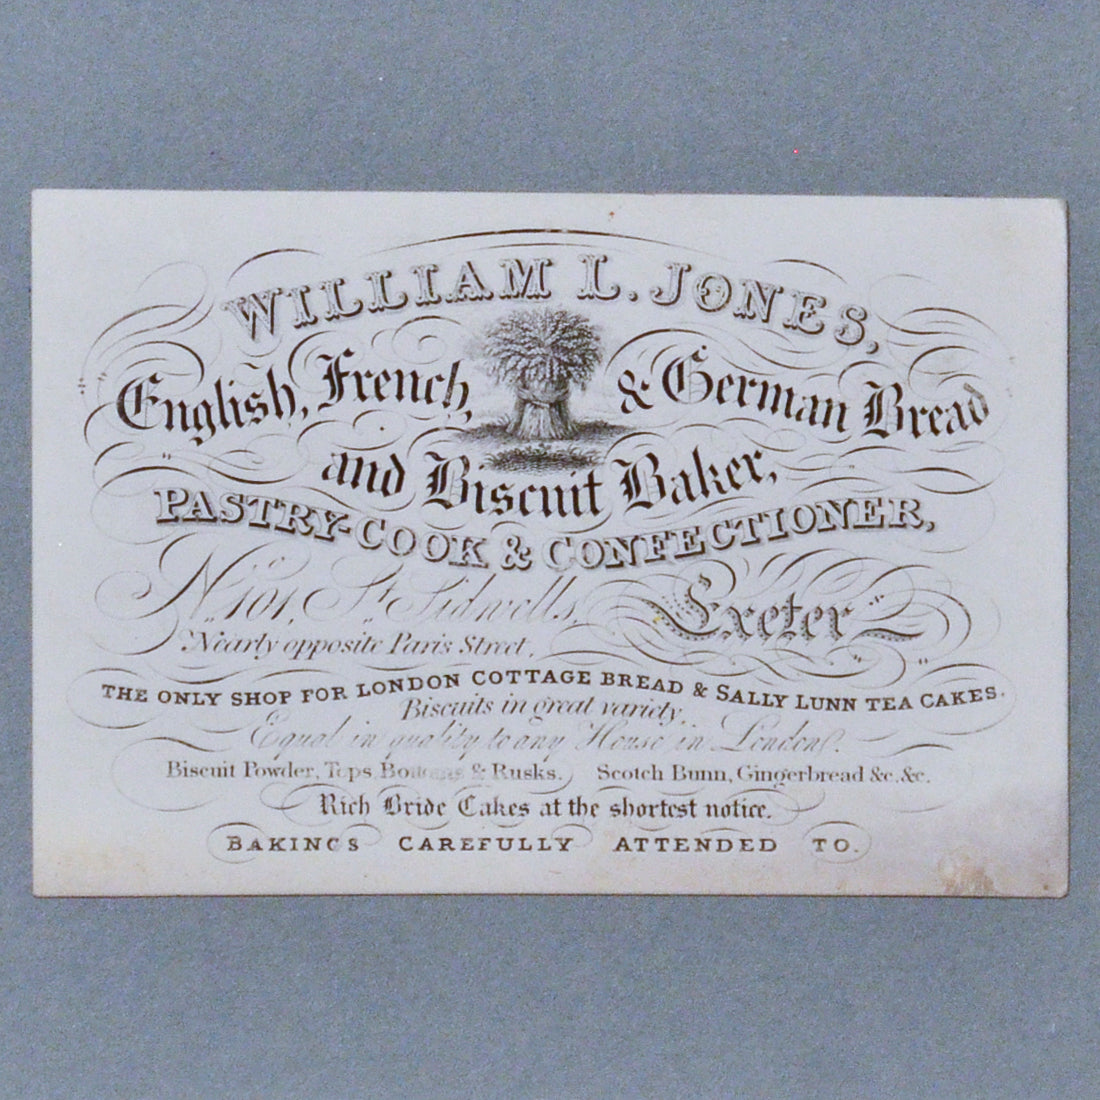 WILLIAM L. JONES,
English, French, & German Bread
and Biscuit Baker,
PASTRY-COOK & CONFECTIONER,
No. 101, St. Sidwells, Exeter
Nearly opposite Paris Street.
THE ONLY SHOP FOR LONDON COTTAGE BREAD & SALLY LUNN TEA CAKES.
Biscuits in great variety.
Equal in quality to any House in London.
Biscuit Powder, Tops, Bottoms & Rusks. Scotch Bunn, Gingerbread &c. &c.
Rich Bride Cakes at the shortest notice.
BAKINGS CAREFULLY ATTENDED TO.